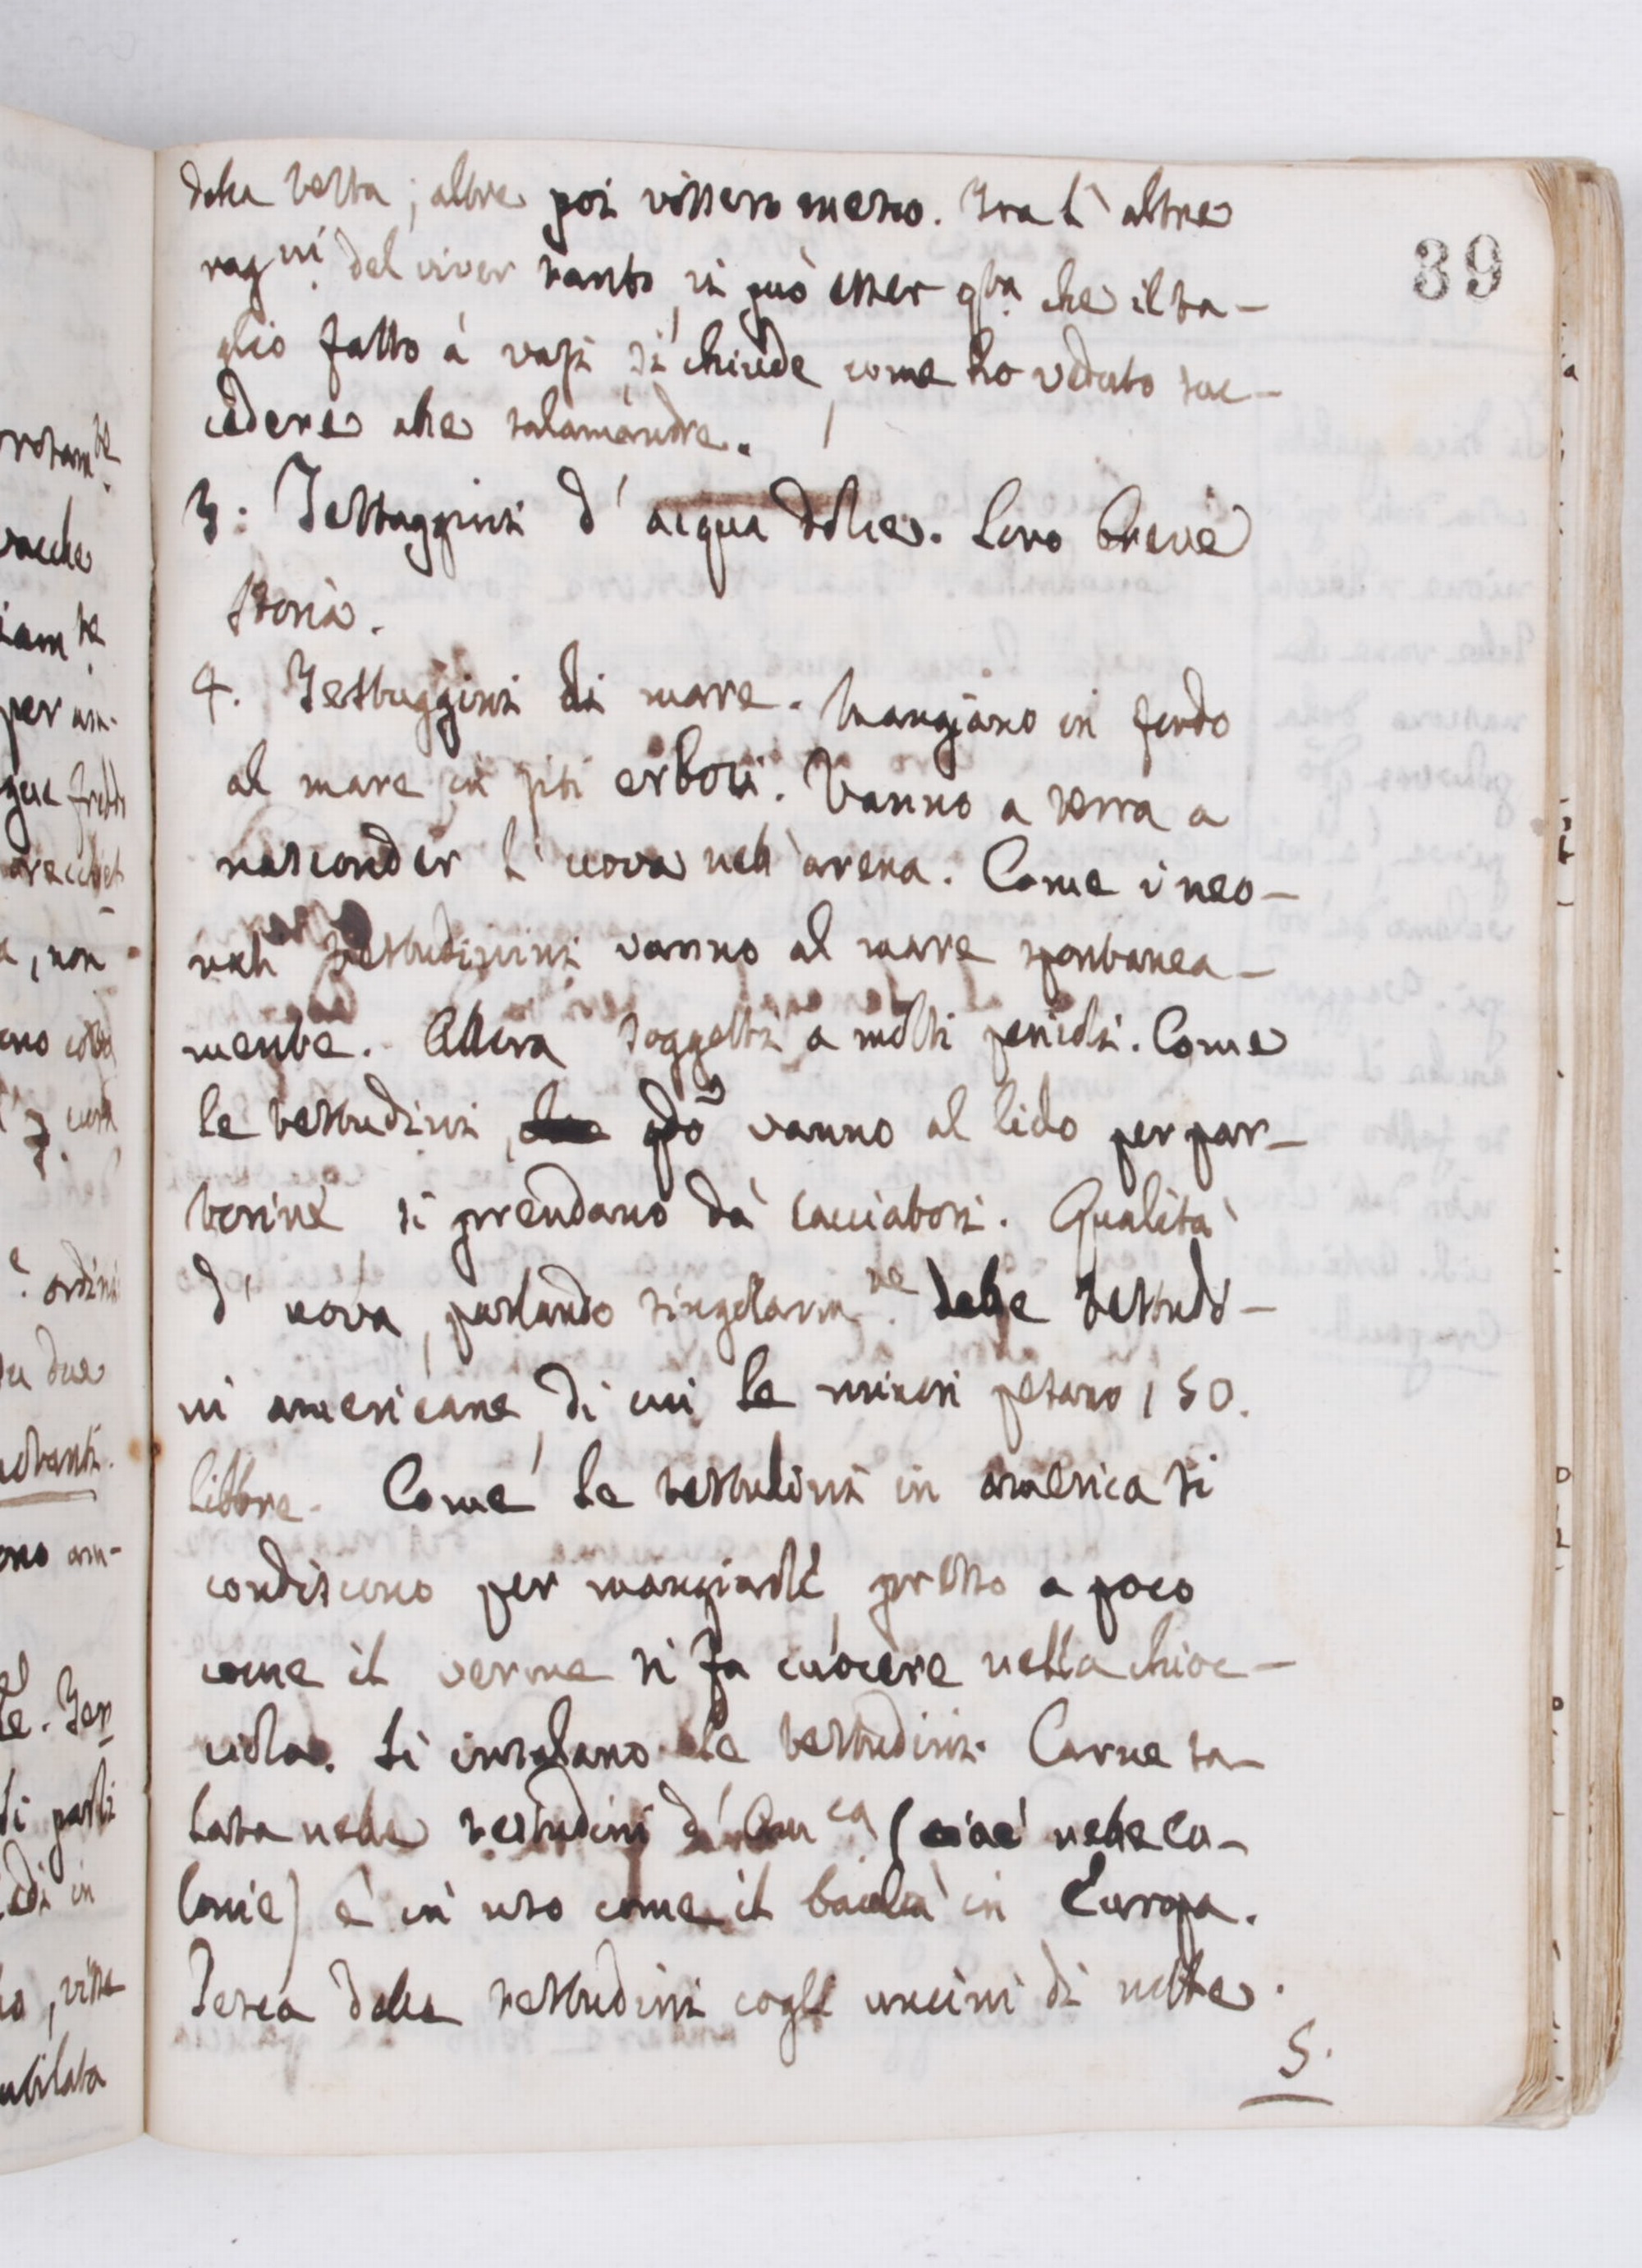 della testa; altre poi vissero meno. Tra l'altre
rag.ni del viver tanto, si può esser q.ta che il ta-
glio fatto a' vasi si chiude, come ho veduto suc-
cedere alle salamandre.
39
3. Testuggini d'acqua dolce. Loro breve
storia.
4. Testuggini di mare. Mangiano in fondo
al mare in siti erbosi. Vanno a terra a
nasconder l'uova nell'arena. Come i neo-
nati testudinini vanno al mare spontanea-
mente. Allora soggetti a molti pericoli. Come
le testudini, qdõ vanno al lido per par-
torire si prendano da' cacciatori. Qualità
d'uova, parlando singolarm.te delle testudi-
ni americane, di cui le minori pesano 150.
libbre. Come le testudini in america si
condiscono per mangiarle, presso a poco
come il verme si fa cuocere nella chioc-
ciola. Si insalano le testudini. Carne sa-
lata nelle testudini d'Am.ca (cioè nelle co-
lonie) è in uso come il baccalà in Europa.
Pesca delle testudini cogli uncini di notte.
5.
rotam.te
vacche
iam.te
per an-
gue freddo
, non
e ordini
du due
ono am-
le. Ter
di parti
in
o, visse
utilata